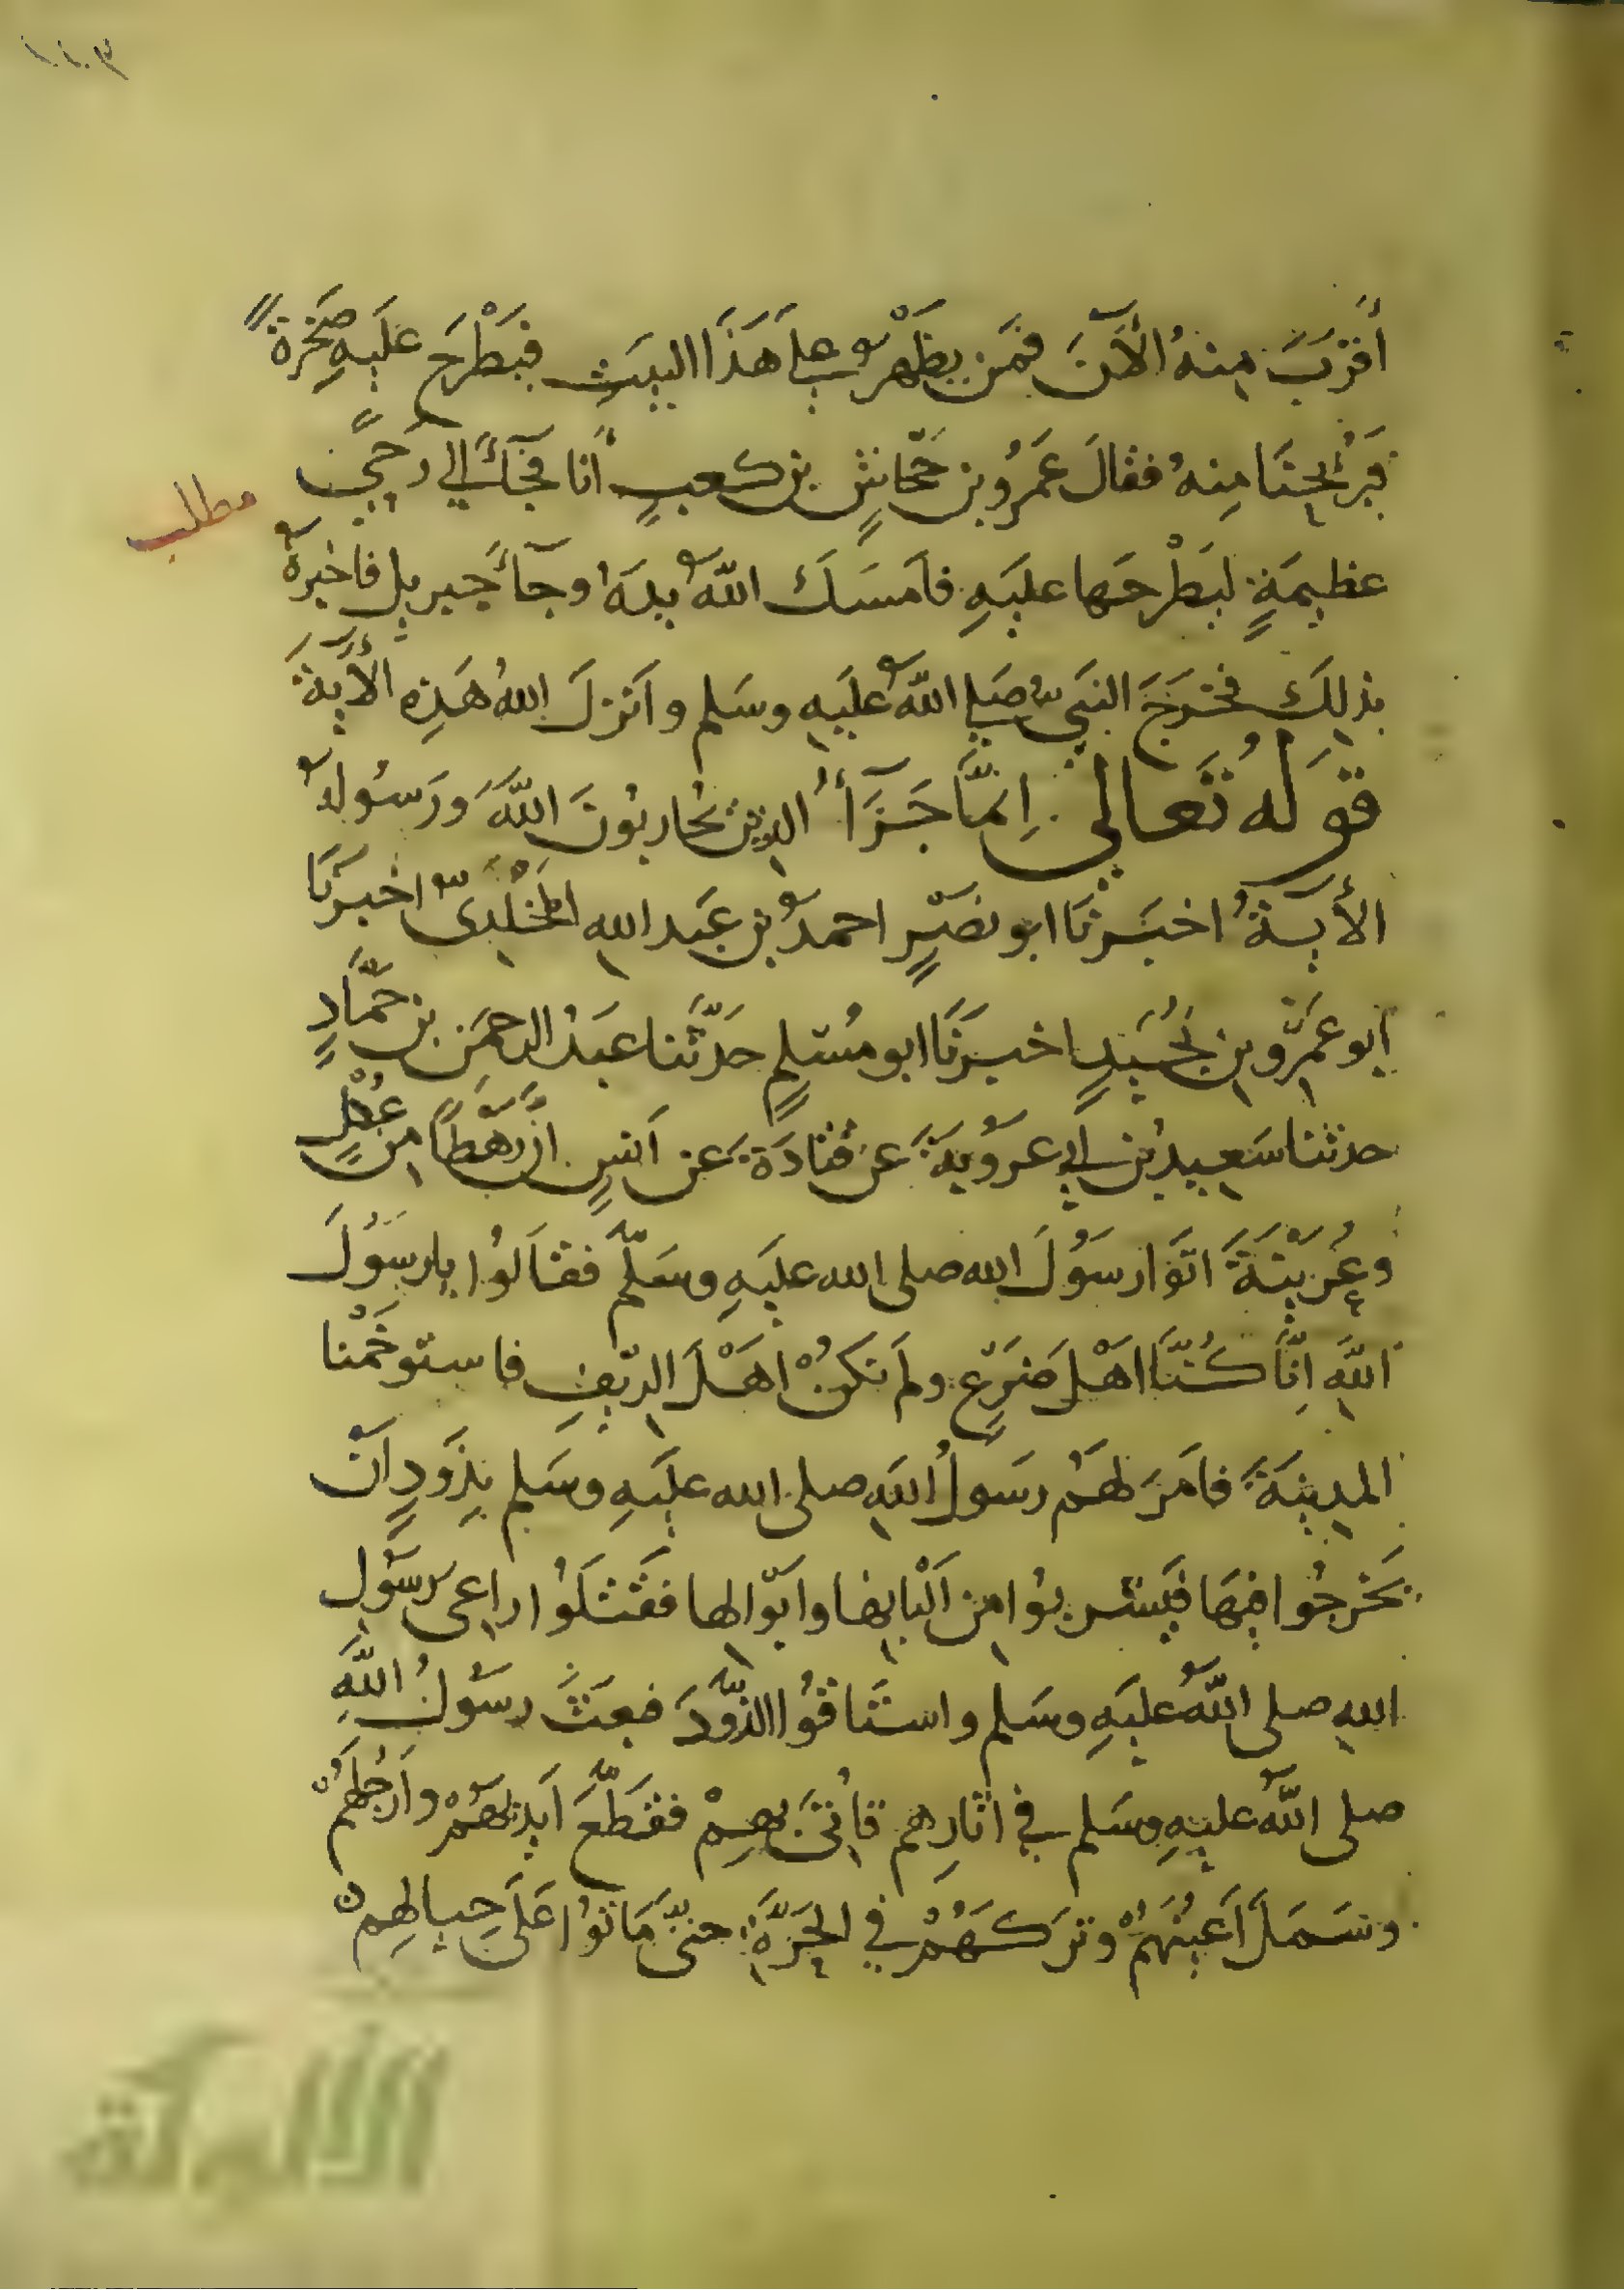 أَقْرَبَ مِنهُ الأَنَ فمَن يظْهر على هَذَا البيتِ فيَطْرَح عليهِ صَخرةً
فيُرِيحنَا مِنهُ فقالَ عَمرُو بن جَحّاشٍ بن كعبٍ أنا فجآءَ إلى رَحىً
مطلب
عظيمَةٍ ليَطْرحَها عليهِ فأمسَكَ اللهُ يدَهُ وجآءَ جبريل فاخبرهُ
بذلِكَ فخرَجَ النبَيُّ صَلى اللهُ عليَهِ وسَلم وأنزلَ اللهُ هَذِهِ الأَيةَ
قوَلهُ تَعالى إنمَّا جَزَآءُ الذين يُحاربُونَ اللهَ ورَسُولهُ
الأيةُ اخبَرنَا ابو نصْرٍ احمدُ بن عَبد الله المَخْلَدِىّ اخبرنَا
ابو عَمْرو بن نُجَيدٍ اخبرنَا ابو مُسْلمٍ حدَّثَنا عَبدُ الرحمَن بن حَمّادٍ
حدثنا سَعيدُ بن ابى عرُوبةَ عن قتادَةَ عَن أنسٍ انَّ رهْطاً من عُكْلٍ
وعُرَينَةَ اتَوَا رسَوُلَ الله صلى الله عليَهِ وسَلّم فقالَوُا يا رسوُلَ
اللهِ إنّا كُنَّا أهْل ضَرْعٍ ولم نكُنْ أهْلَ الريفِ فاستوخَمْنا
المدينَةَ فامَرَ لهَمُ رسَولُ اللهِ صلى الله عليَهِ وسَلم بِذَودٍ أنْ
يخَرجُوا فيهَا فيَشربوُا مِن ألْبانِهَا وأبْوالها فقَتَلَوُا راعىَ رسَوُلِ
اللهِ صلى اللهُ عليَهِ وسَلم واستَاقوُا الذَّودَ فبعَثَ رسَولُ اللهِ
صلى اللهُ عليهِ وسَلم فى اثارِهم فأتىَ بهِمْ فقطَّعَ أيديَهُمْ وأرجُلهُمْ
وسَمَلَ أعيُنَهُمْ وتركَهُمْ فى الحَرَّةِ حتىّ مَاتوُا عَلَى حِيالهِم